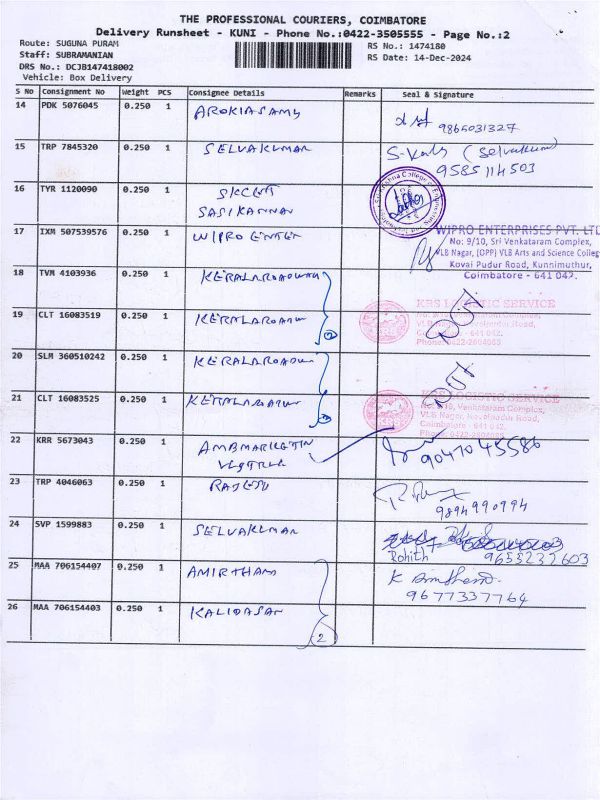 THE PROFESSIONAL COURIERS, COIMBATORE
Delivery Runsheet - KUNI - Phone No.:0422-3505555 - Page No.:2
Route: SUGUNA PURAM
RS No.: 1474180
Staff: SUBRAMANIAN
RS Date: 14-Dec-2024
DRS No.: DCJB147418002
Vehicle: Box Delivery
S No Consignment No Weight PCS Consignee Details Remarks Seal & Signature
14 PDK 5076045 0.250 1 AROKIASAMY 9865031327
15 TRP 7845320 0.250 1 SELVAKUMAR (Selvakumar)
9585114503
16 TYR 1120090 0.250 1 SKCET
SASIKANNAN
17 IXM 507539576 0.250 1 WIPRO ENTER
WIPRO ENTERPRISES PVT. LTD
No: 9/10, Sri Venkataram Complex,
VLB Nagar, (OPP) VLB Arts and Science College
Kovai Pudur Road, Kunnimuthur,
Coimbatore - 641 042.
18 TVM 4103936 0.250 1 KERALAROADWAY
19 CLT 16083519 0.250 1 KERALAROADW
2
KRS LOGISTIC SERVICE
No: 9/10, Venkataram Complex,
VLB Nagar, Kovaipudur Road,
Coimbatore - 641 042.
Phone: 0422-2604063
20 SLM 360510242 0.250 1 KERALAROADW
21 CLT 16083525 0.250 1 KERALAROADW
KRS LOGISTIC SERVICE
No: 9/10, Venkataram Complex,
VLB Nagar, Kovaipudur Road,
Coimbatore - 641 042.
Phone: 0422-2604063
22 KRR 5673043 0.250 1 AMBMARKETIN
9047045586
23 TRP 4046063 0.250 1 RAJESH
9894990994
24 SVP 1599883 0.250 1 SELVAKUMAR
Rohith 9655237603
25 MAA 706154407 0.250 1 AMIRTHAM
9677337764
26 MAA 706154403 0.250 1 KALIDASAN
2